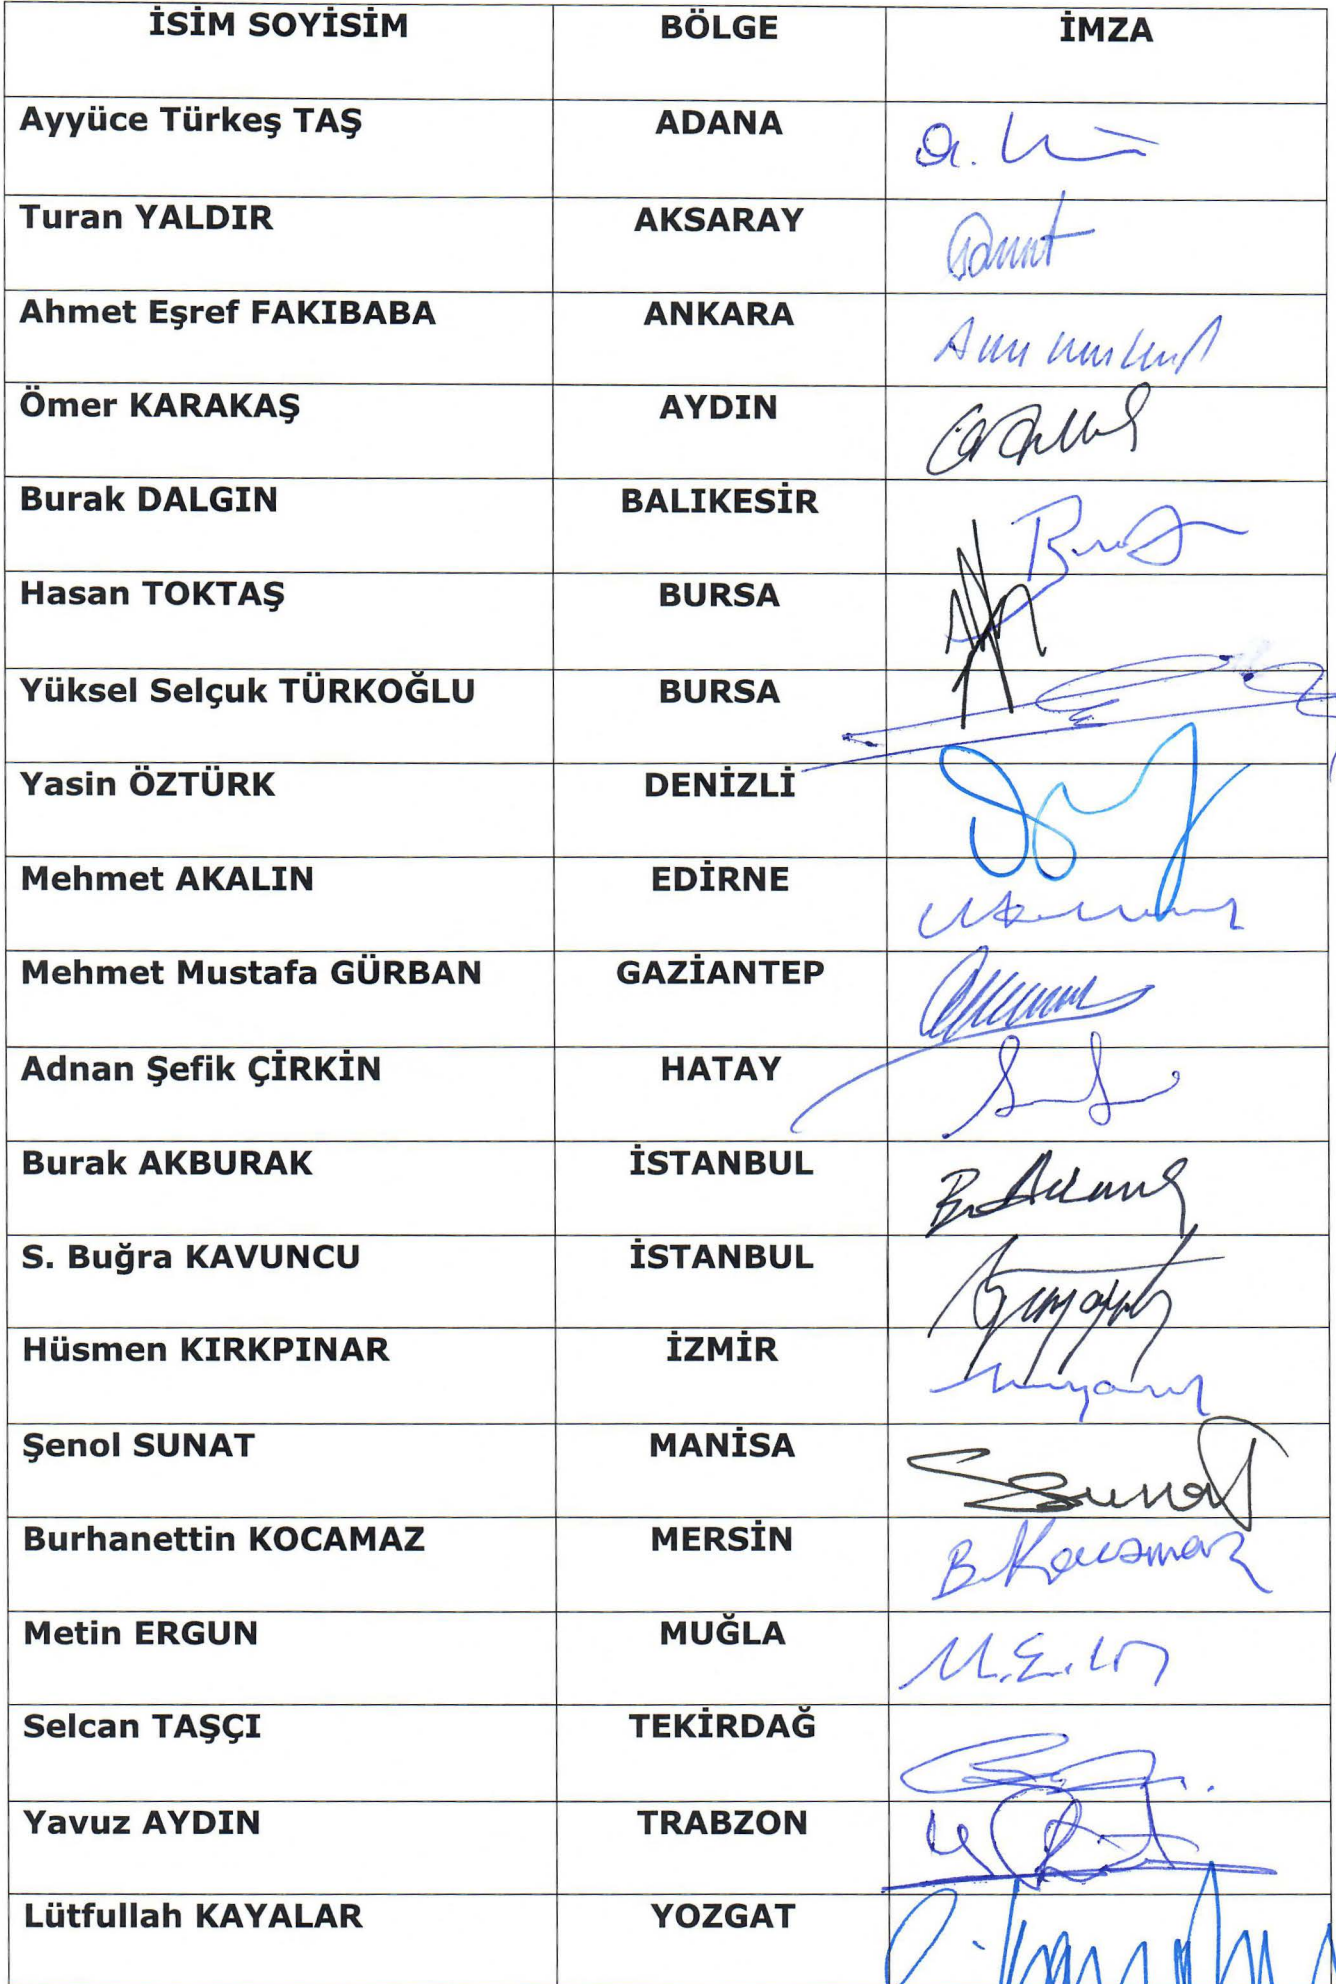 İSİM SOYİSİM BÖLGE İMZA
Ayyüce Türkeş TAŞ ADANA
Turan YALDIR AKSARAY
Ahmet Eşref FAKIBABA ANKARA
Ömer KARAKAŞ AYDIN
Burak DALGIN BALIKESİR
Hasan TOKTAŞ BURSA
Yüksel Selçuk TÜRKOĞLU BURSA
Yasin ÖZTÜRK DENİZLİ
Mehmet AKALIN EDİRNE
Mehmet Mustafa GÜRBAN GAZİANTEP
Adnan Şefik ÇİRKİN HATAY
Burak AKBURAK İSTANBUL
S. Buğra KAVUNCU İSTANBUL
Hüsmen KIRKPINAR İZMİR
Şenol SUNAT MANİSA
Burhanettin KOCAMAZ MERSİN B.Kocamaz
Metin ERGUN MUĞLA
Selcan TAŞÇI TEKİRDAĞ
Yavuz AYDIN TRABZON
Lütfullah KAYALAR YOZGAT